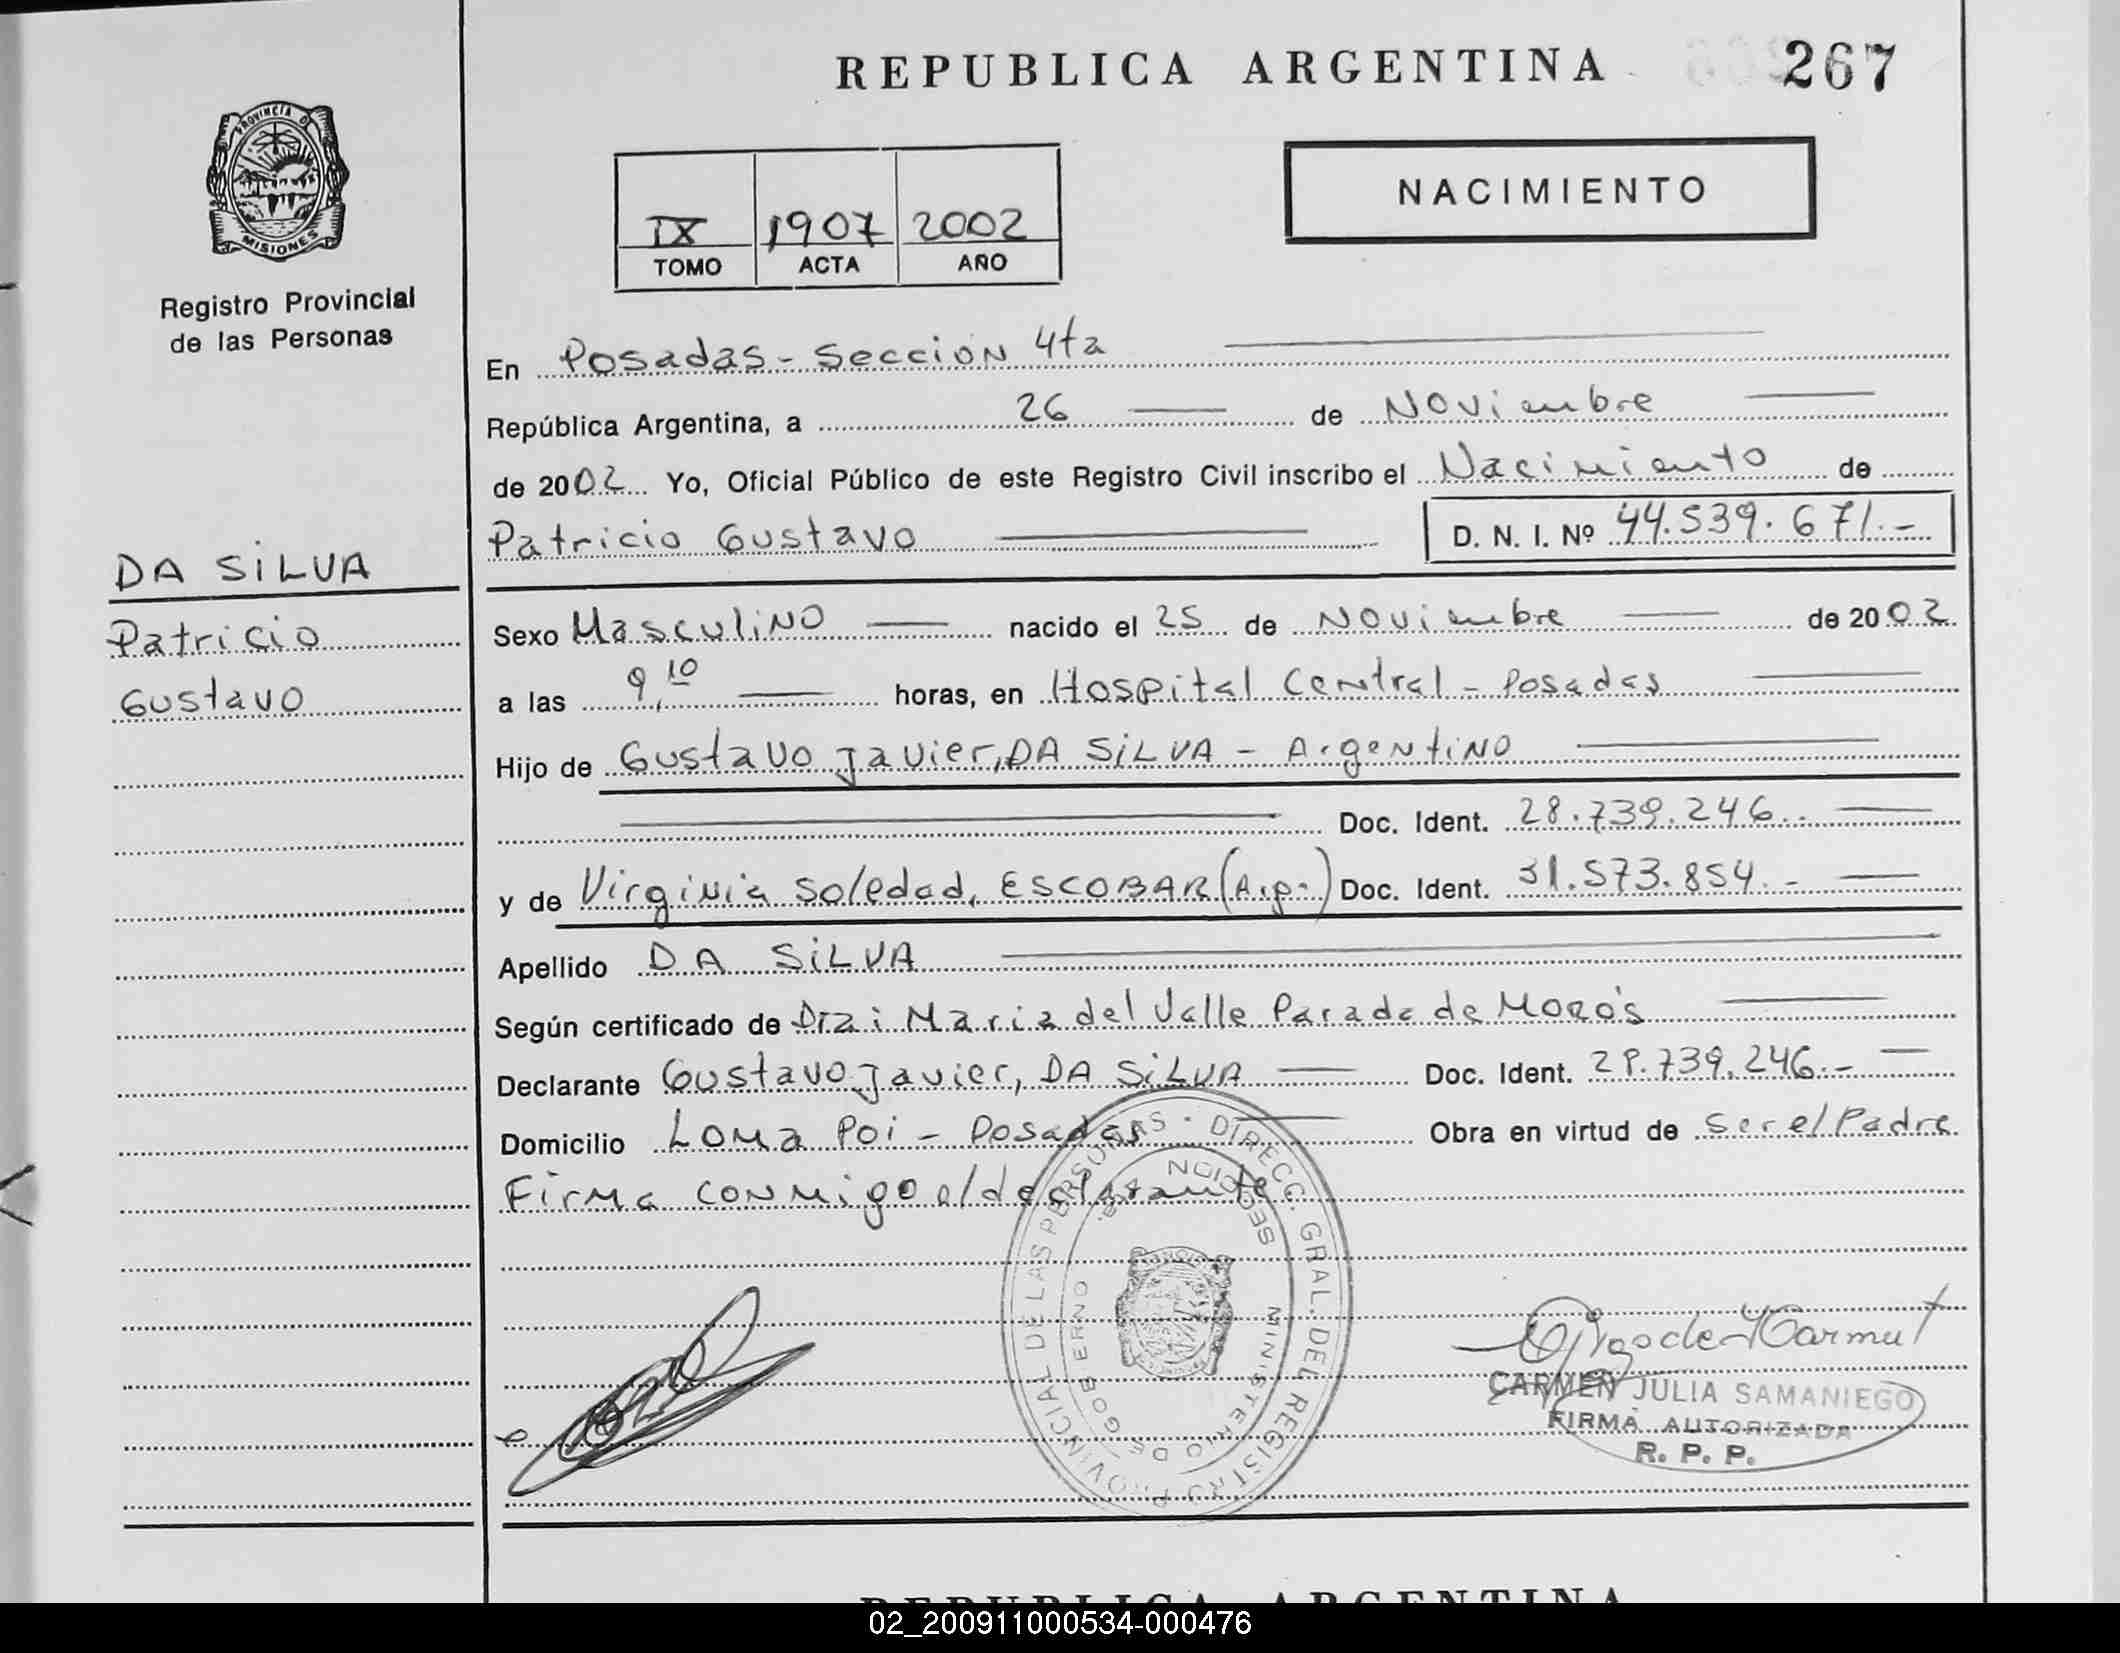 REPUBLICA ARGENTINA
267
PROVINCIA D
MISIONES
Registro Provincial
de las Personas
IX 1907 2002
TOMO ACTA AÑO
NACIMIENTO
En Posadas - Sección 4ta
República Argentina, a 26 de Noviembre
de 2002 Yo, Oficial Público de este Registro Civil inscribo el Nacimiento de
Patricio Gustavo D. N. I. Nº 44.539.671.-
DA SILVA
Patricio
Gustavo
Sexo Masculino nacido el 25 de Noviembre de 2002
a las 9,10 horas, en Hospital Central - Posadas
Hijo de Gustavo Javier, DA SILVA - Argentino
Doc. Ident. 28.739.246.-
y de Virginia Soledad, ESCOBAR (Arg.) Doc. Ident. 31.573.854.-
Apellido DA SILVA
Según certificado de Dra: Maria del Valle Parada de
Declarante Gustavo Javier, DA SILVA Doc. Ident. 28.739.246.-
Domicilio Loma Poi - Posadas Obra en virtud de Ser el Padre
Firma conmigo el declarante
DIRECC. GRAL. DEL REGISTRO PROVINCIAL DE LAS PERSONAS
MINISTERIO DE GOBIERNO
SECCION
CARMEN JULIA SAMANIEGO
FIRMA AUTORIZADA
R. P. P.
REPUBLICA ARGENTINA
02_200911000534-000476